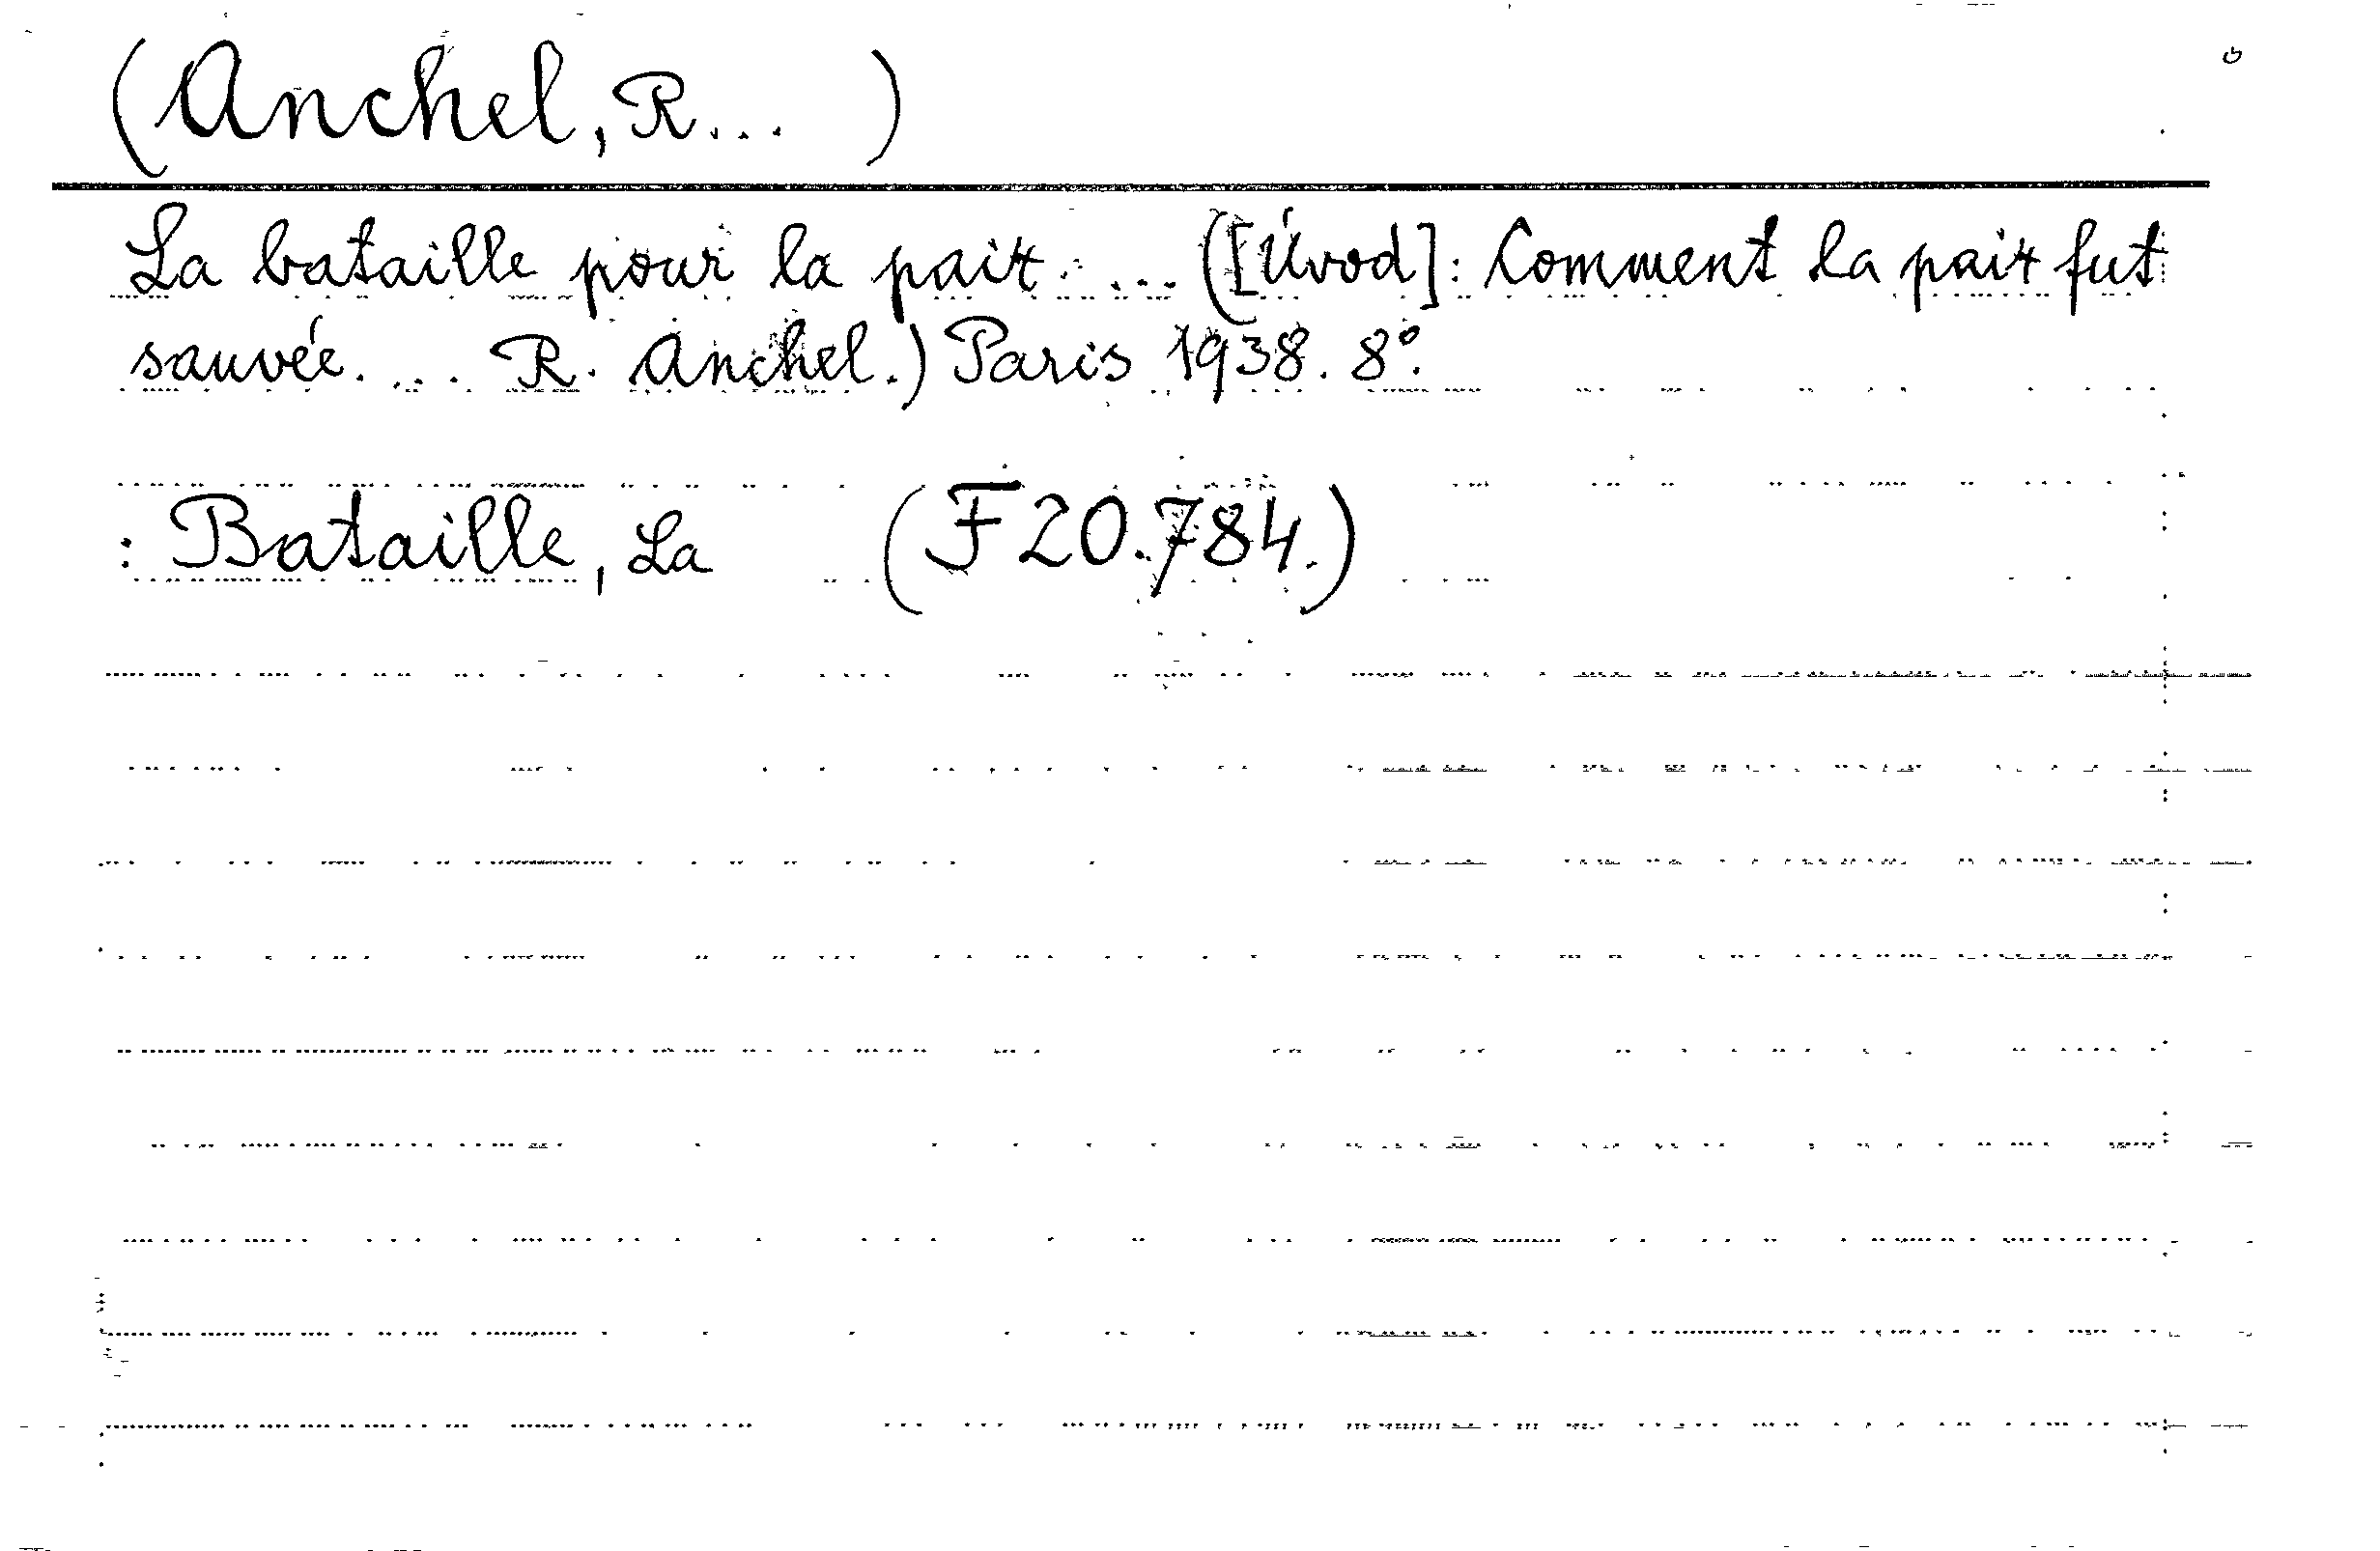 (Anchel, R... )
La bataille pour la paix. ... ([Úvod]: Comment la paix fut
sauvée. ... R. Anchel.) Paris 1938. 8°.
: Bataille, La (F 20.784.)